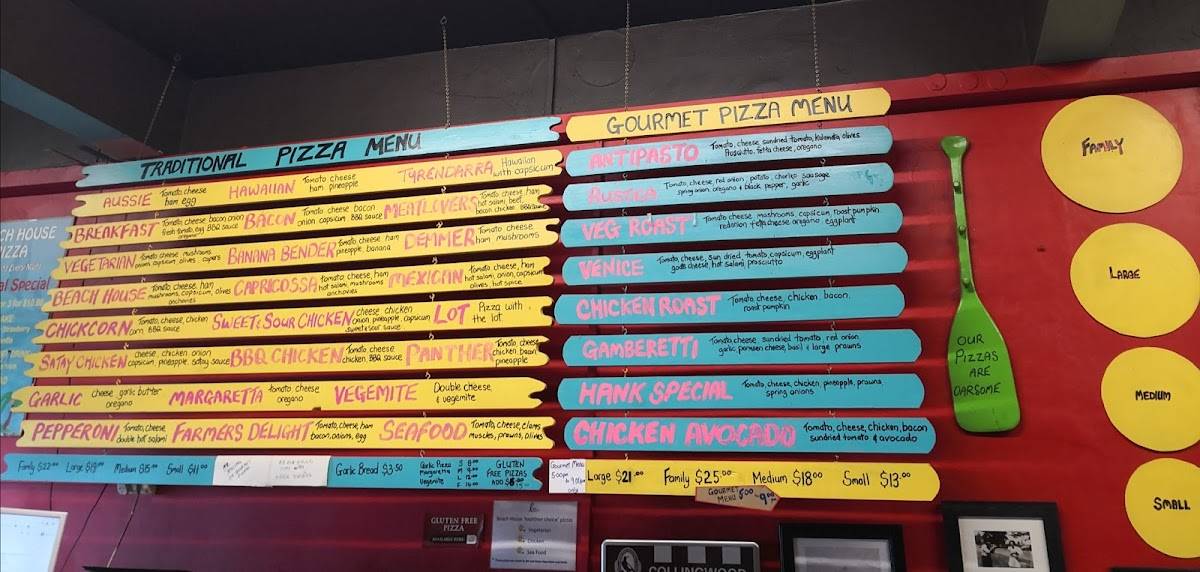 TRADITIONAL PIZZA MENU
AUSSIE Tomato cheese
ham egg
HAWAIIAN Tomato cheese
ham pineapple
TYRENDARRA Hawaiian
with capsicum
BREAKFAST Tomato cheese bacon onion
fresh tomato, egg BBQ sauce
BACON Tomato cheese bacon
onion, capsicum BBQ sauce
MEATLOVERS Tomato cheese, ham
hot salami, beef,
bacon chicken BBQ sauce
VEGETARIAN Tomato cheese mushrooms
onion capsicum olives, capers
BANANA BENDER Tomato cheese ham
pineapple, banana
DEMMER Tomato cheese
ham mushrooms
BEACH HOUSE Tomato cheese, ham
mushrooms, capsicum, olives
anchovies
CAPRICOSSA Tomato cheese, ham
hot salami, mushrooms
anchovies
MEXICAN Tomato cheese, ham
hot salami, onion, capsicum
olives, hot spice
CHICKCORN Tomato, cheese, chicken
corn BBQ sauce
SWEET & SOUR CHICKEN cheese chicken
onion, pineapple, capsicum
sweet & sour sauce
LOT Pizza with
the lot
SATAY CHICKEN cheese, chicken onion
capsicum, pineapple, satay sauce
BBQ CHICKEN Tomato, cheese
chicken BBQ sauce
PANTHER Tomato cheese
chicken, bacon
pineapple
GARLIC cheese, garlic butter
oregano
MARGARETTA Tomato cheese
oregano
VEGEMITE Double cheese,
& vegemite
PEPPERONI Tomato, cheese,
double hot salami
FARMERS DELIGHT Tomato, cheese, ham
bacon, onions, egg
SEAFOOD Tomato, cheese, clams
muscles, prawns, olives
Family $22.00 Large $19.00 Medium $15.00 Small $11.00
Garlic Bread $3.50
Garlic Pizza
Margaretta
Vegemite
GLUTEN
FREE PIZZAS
GOURMET PIZZA MENU
ANTIPASTO Tomato, cheese, sundried tomato, kalamata olives
Prosciutto, fetta cheese, oregano
RUSTICA Tomato, cheese, red onion, potato, chorizo sausage
spring onion, oregano & black pepper, garlic
VEG ROAST Tomato cheese, mushrooms, capsicum, roast pumpkin
red onion fetta cheese, oregano, eggplant
VENICE Tomato, cheese, sun dried tomato, capsicum, eggplant
goats cheese, hot salami, prosciutto
CHICKEN ROAST Tomato cheese, chicken, bacon,
roast pumpkin
GAMBERETTI Tomato cheese, sundried tomato, red onion
garlic, parmesan cheese, basil & large prawns
HANK SPECIAL Tomato, cheese, chicken, pineapple, prawns
spring onions
CHICKEN AVOCADO Tomato, cheese, chicken, bacon
sundried tomato & avocado
Gourmet Menu
5:00pm
only
Large $21.00 Family $25.00 Medium $18.00 Small $13.00
GOURMET
MENU 5:00 - 9:00
OUR
PIZZAS
ARE
OARSOME
FAMILY
LARGE
MEDIUM
SMALL
GLUTEN FREE
PIZZA
AVAILABLE HERE
Vegetarian
Chicken
Sea Food
COLLINGWOOD